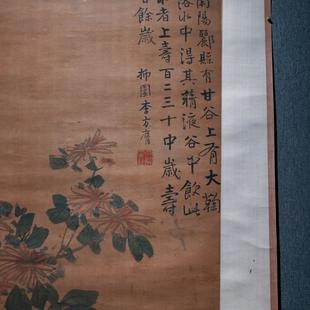 南陽酈縣有甘谷上有大菊
落水中得其精液谷中飲此
水者上壽百二三十中歲壽
百餘歲
柳園李方膺